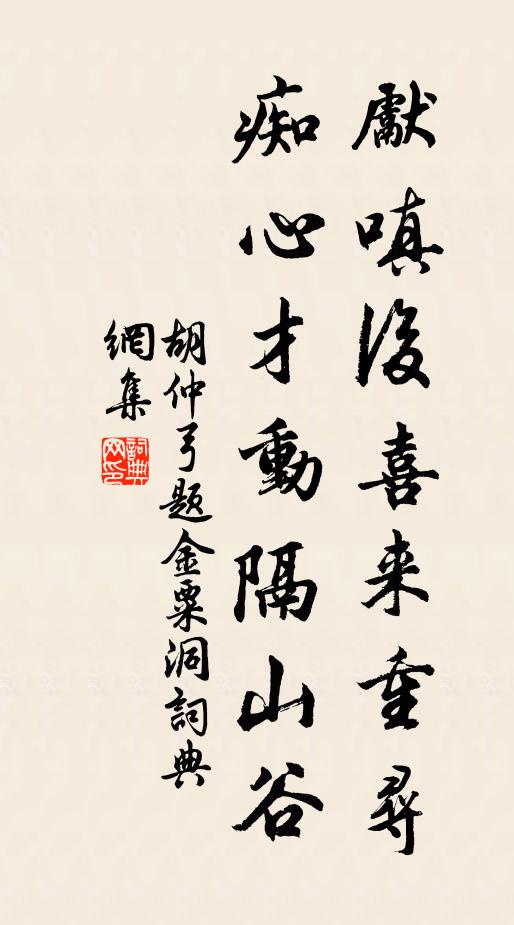 獻嗔後喜来重尋
痴心才動隔山谷
胡仲弓题金粟洞詞典
網集
詞典
网印